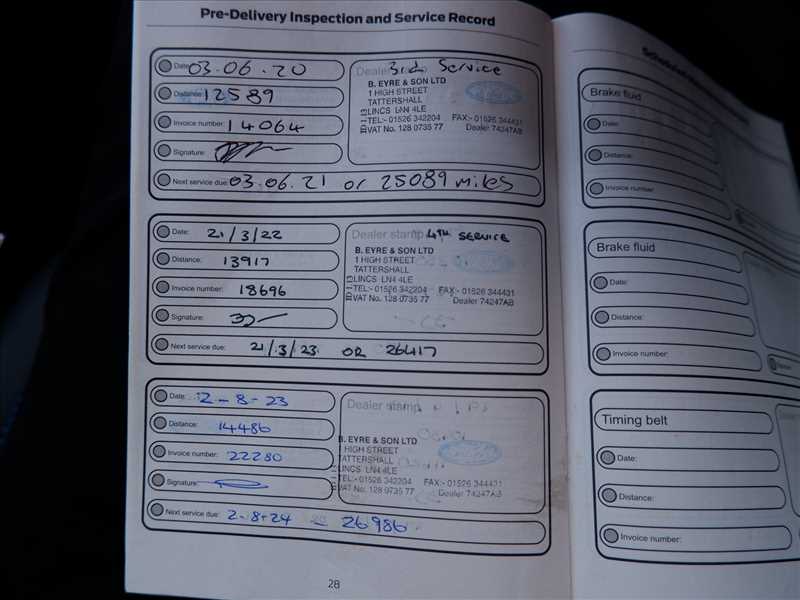 Pre-Delivery Inspection and Service Record
Date: 03.06.20
Distance: 12589
Invoice number: 14064
Signature:
Next service due: 03.06.21 or 25089 miles
Dealer stamp 3rd Service
B. EYRE & SON LTD
1 HIGH STREET
TATTERSHALL
LINCS LN4 4LE
TEL:- 01526 342204 FAX:- 01526 344431
VAT No. 128 0735 77 Dealer 74247AB
Date: 21/3/22
Distance: 13917
Invoice number: 18696
Signature:
Next service due: 21/3/23 OR 26417
Dealer stamp 4TH SERVICE
B. EYRE & SON LTD
1 HIGH STREET
TATTERSHALL
LINCS LN4 4LE
TEL:- 01526 342204 FAX:- 01526 344431
VAT No. 128 0735 77 Dealer 74247AB
Date: 2-8-23
Distance: 14486
Invoice number: 22280
Signature:
Next service due: 2-8-24 - 26986
Dealer stamp
B. EYRE & SON LTD
1 HIGH STREET
TATTERSHALL
LINCS LN4 4LE
TEL:- 01526 342204 FAX:- 01526 344431
VAT No. 128 0735 77 Dealer 74247AB
28
Brake fluid
Date:
Distance:
Invoice number:
Brake fluid
Date:
Distance:
Invoice number:
Timing belt
Date:
Distance:
Invoice number: